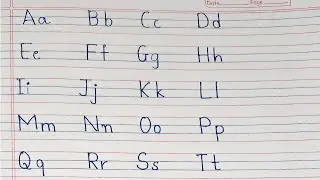 Date Page
Aa Bb Cc Dd
Ee Ff Gg Hh
Ii Jj Kk Ll
Mm Nn Oo Pp
Qq Rr Ss Tt